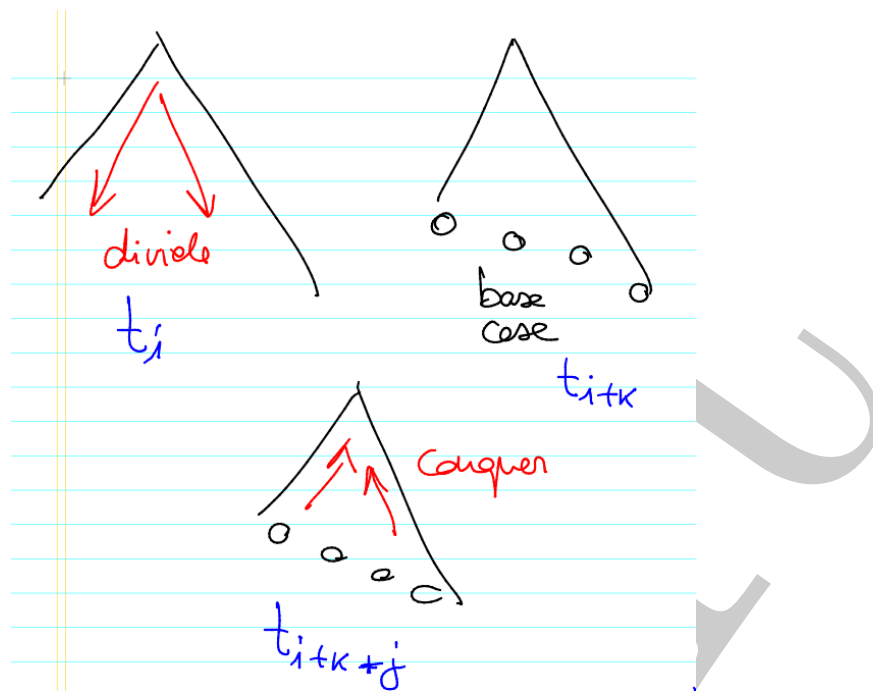 divide
t_i
base
case
t_{i+k}
conquer
t_{i+k+j}
U